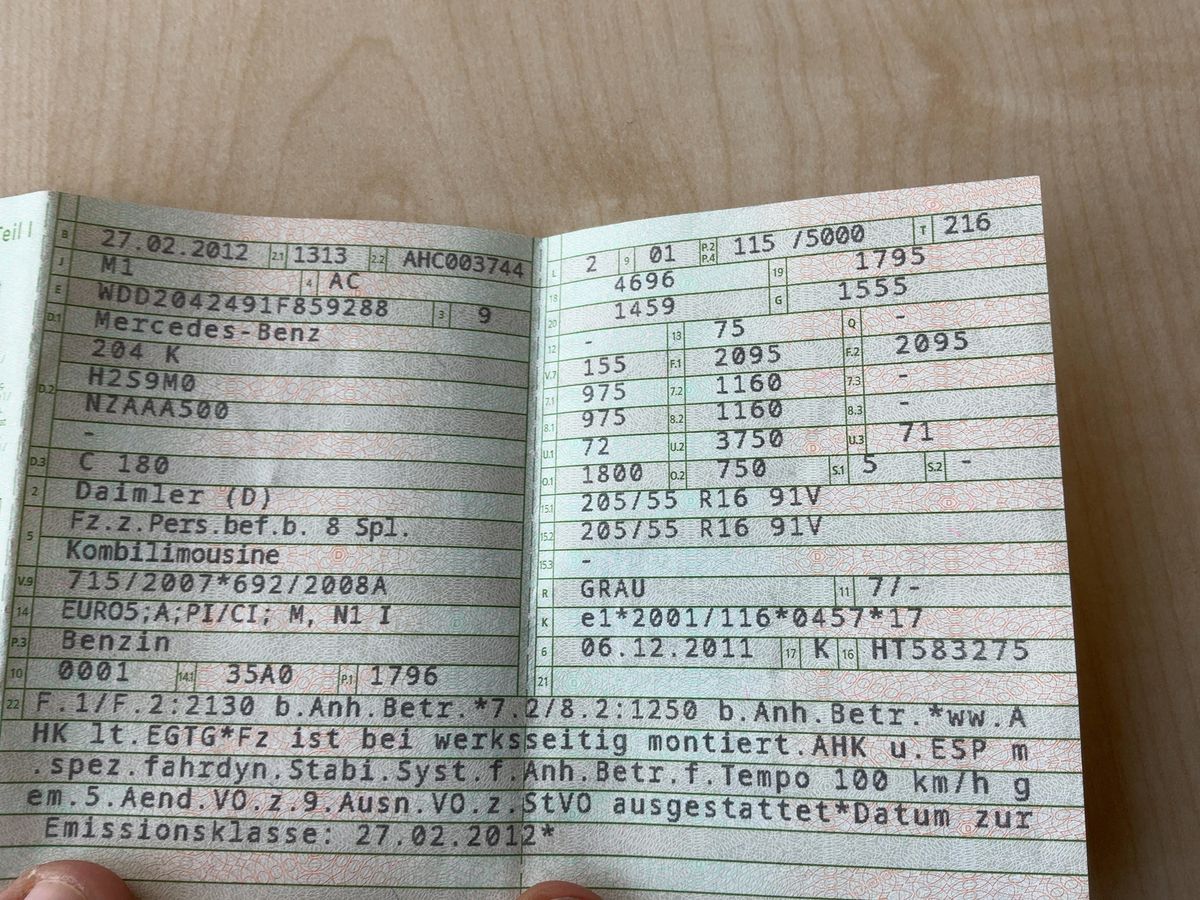 Teil I
B 27.02.2012 2.1 1313 2.2 AHC003744
J M1 4 AC
E WDD2042491F859288 3 9
D.1 Mercedes-Benz
204 K
D.2 H2S9M0
NZAAA500
-
D.3 C 180
2 Daimler (D)
5 Fz.z.Pers.bef.b. 8 Spl.
Kombilimousine
V.9 715/2007*692/2008A
14 EURO5;A;PI/CI; M, N1 I
P.3 Benzin
10 0001 14.1 35A0 P.1 1796
L 2 9 01 P.2 P.4 115 /5000 T 216
18 4696 19 1795
20 1459 G 1555
12 - 13 75 Q -
V.7 155 F.1 2095 F.2 2095
7.1 975 7.2 1160 7.3 -
8.1 975 8.2 1160 8.3 -
U.1 72 U.2 3750 U.3 71
O.1 1800 O.2 750 S.1 5 S.2 -
15.1 205/55 R16 91V
15.2 205/55 R16 91V
15.3 -
R GRAU 11 7/-
K e1*2001/116*0457*17
6 06.12.2011 17 K 16 HT583275
21
22 F.1/F.2:2130 b.Anh.Betr.*7.2/8.2:1250 b.Anh.Betr.*ww.A
HK lt.EGTG*Fz ist bei werksseitig montiert.AHK u.ESP m
.spez.fahrdyn.Stabi.Syst.f.Anh.Betr.f.Tempo 100 km/h g
em.5.Aend.VO.z.9.Ausn.VO.z.StVO ausgestattet*Datum zur
Emissionsklasse: 27.02.2012*